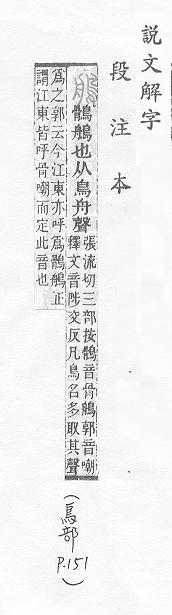 說文解字
段注本
鵃 鶻鵃也从鳥舟聲
張流切三部按鶻音骨鵃郭音嘲
釋文音陟交反凡鳥名多取其聲
爲之郭云今江東亦呼爲鶻鵃正
謂江東皆呼骨嘲而定此音也
(鳥部 P.151)